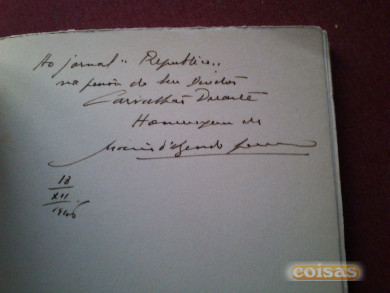 Ao jornal "Republica"
na pessôa do seu Director
Carvalhão Duarte
Homenagem de
13
XII
1946
coisas